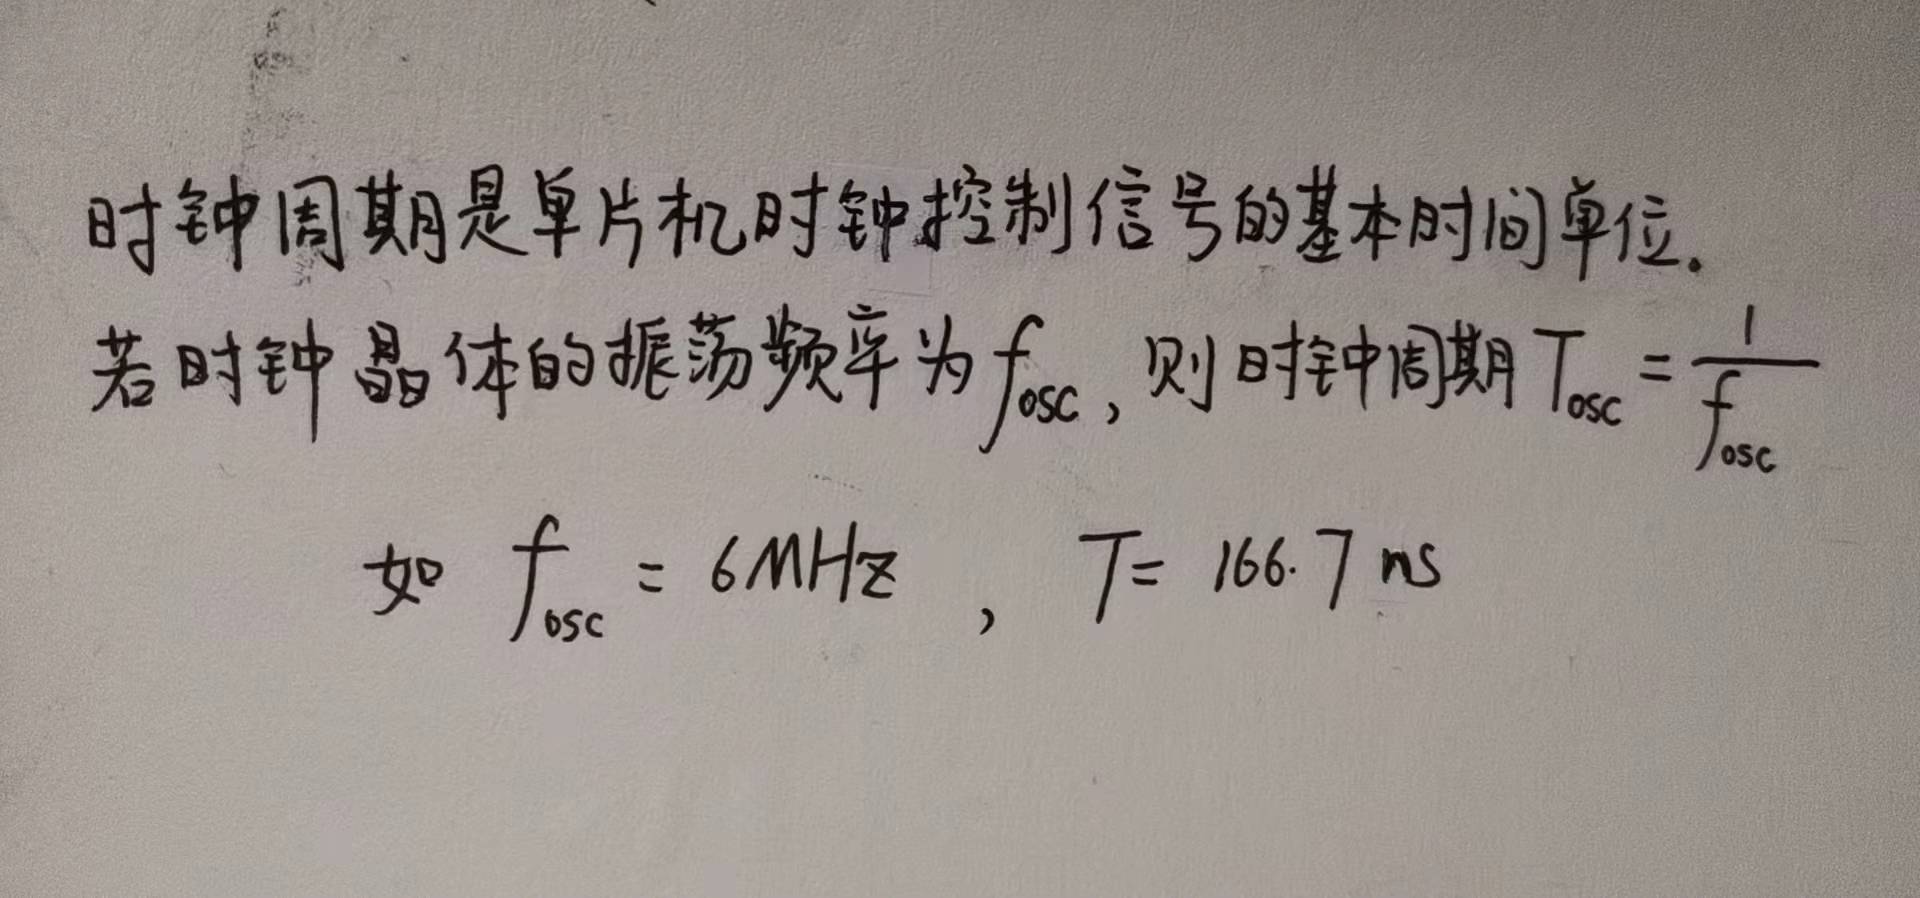 时钟周期是单片机时钟控制信号的基本时间单位.
若时钟晶体的振荡频率为 f_osc, 则时钟周期 T_osc = 1/f_osc
如 f_osc = 6MHz , T = 166.7 ns